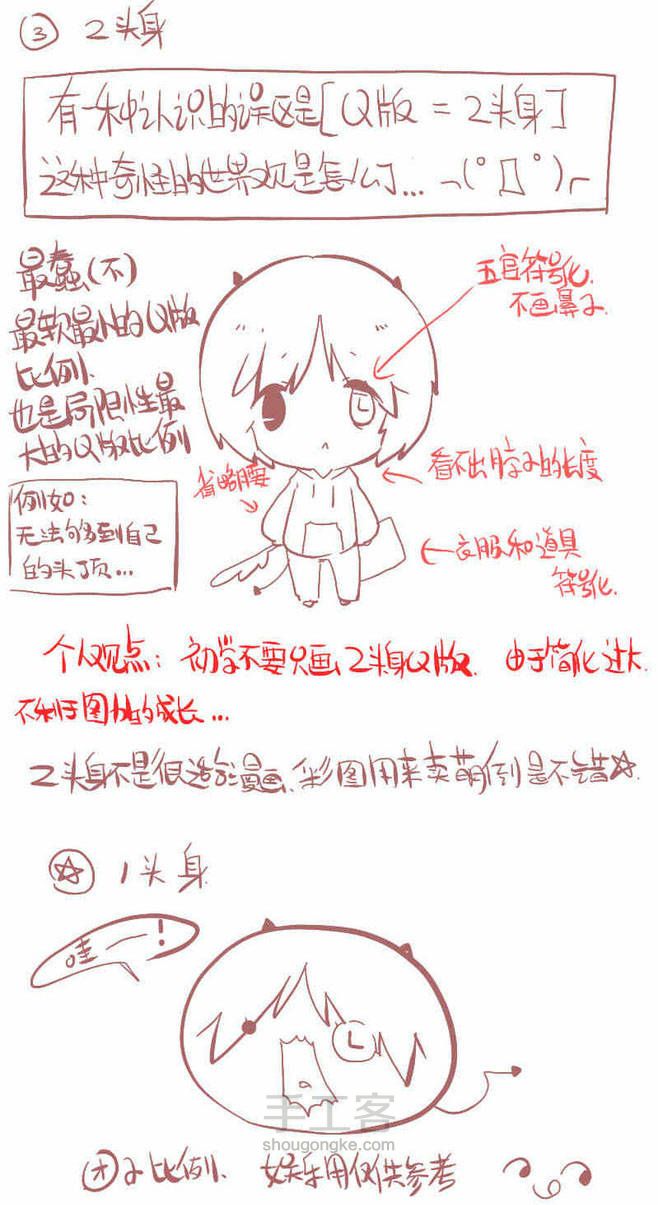 ③ 2头身
有一种认识的误区是[Q版 = 2头身]
这种奇怪的世界观是怎么了... ¬(°Д°)⌐
最蠢(不)
最软最小的Q版
比例.
也是局限性最
大的Q版比例
例如:
无法够到自己
的头顶...
五官符号化.
不画鼻子.
省略腰
看不出脖子的长度
←衣服和道具
符号化.
L
个人观点: 初学不要只画2头身Q版. 由于简化过大.
不利于图力的成长...
2头身不是很适合漫画、彩图用来卖萌倒是不错☆.
☆ 1头身
哇一!
L
手工客
shougongke.com
比例. 娱乐用仅供参考